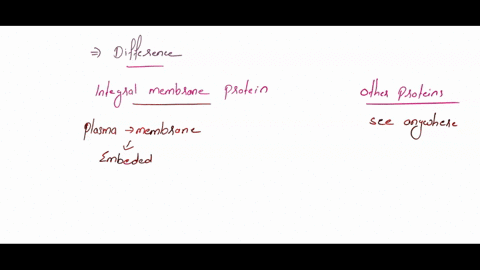 ⇒ Difference
Integral membrane protein
Other Proteins
Plasma → membrane
see anywhere
↓
Embeded